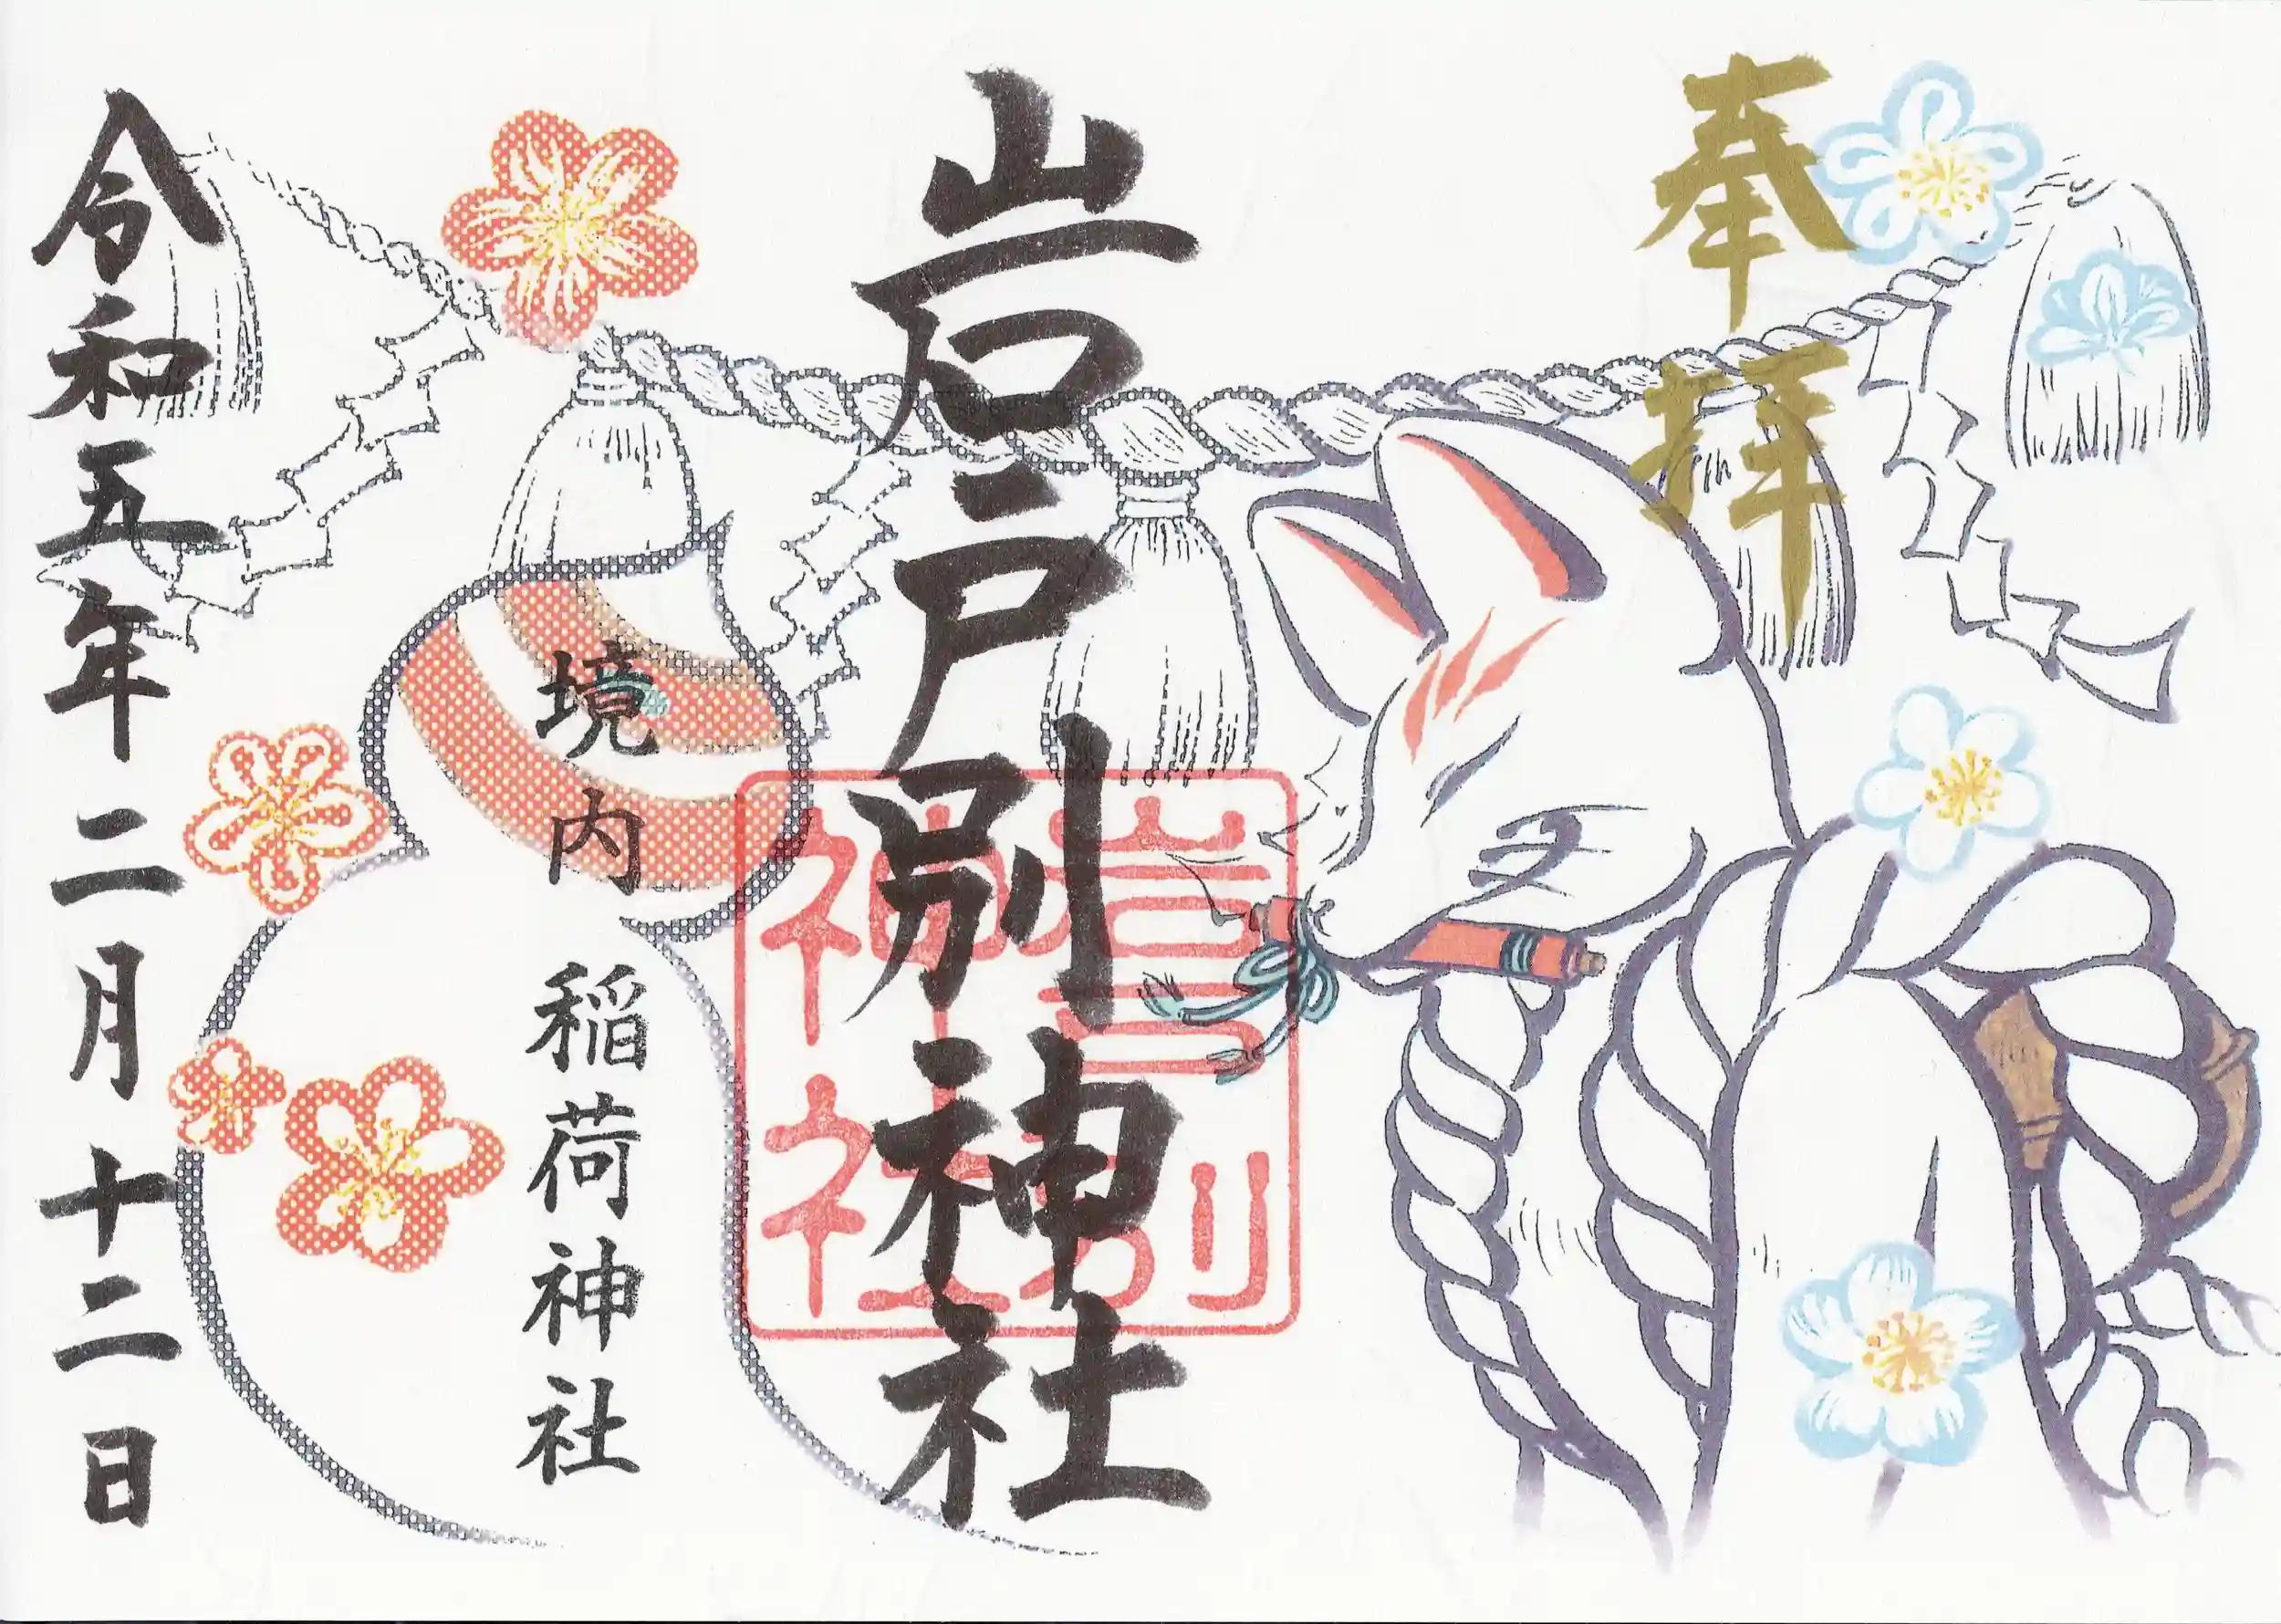 奉拝
岩戸別神社
岩戸別神社
境内 稲荷神社
令和五年二月十二日